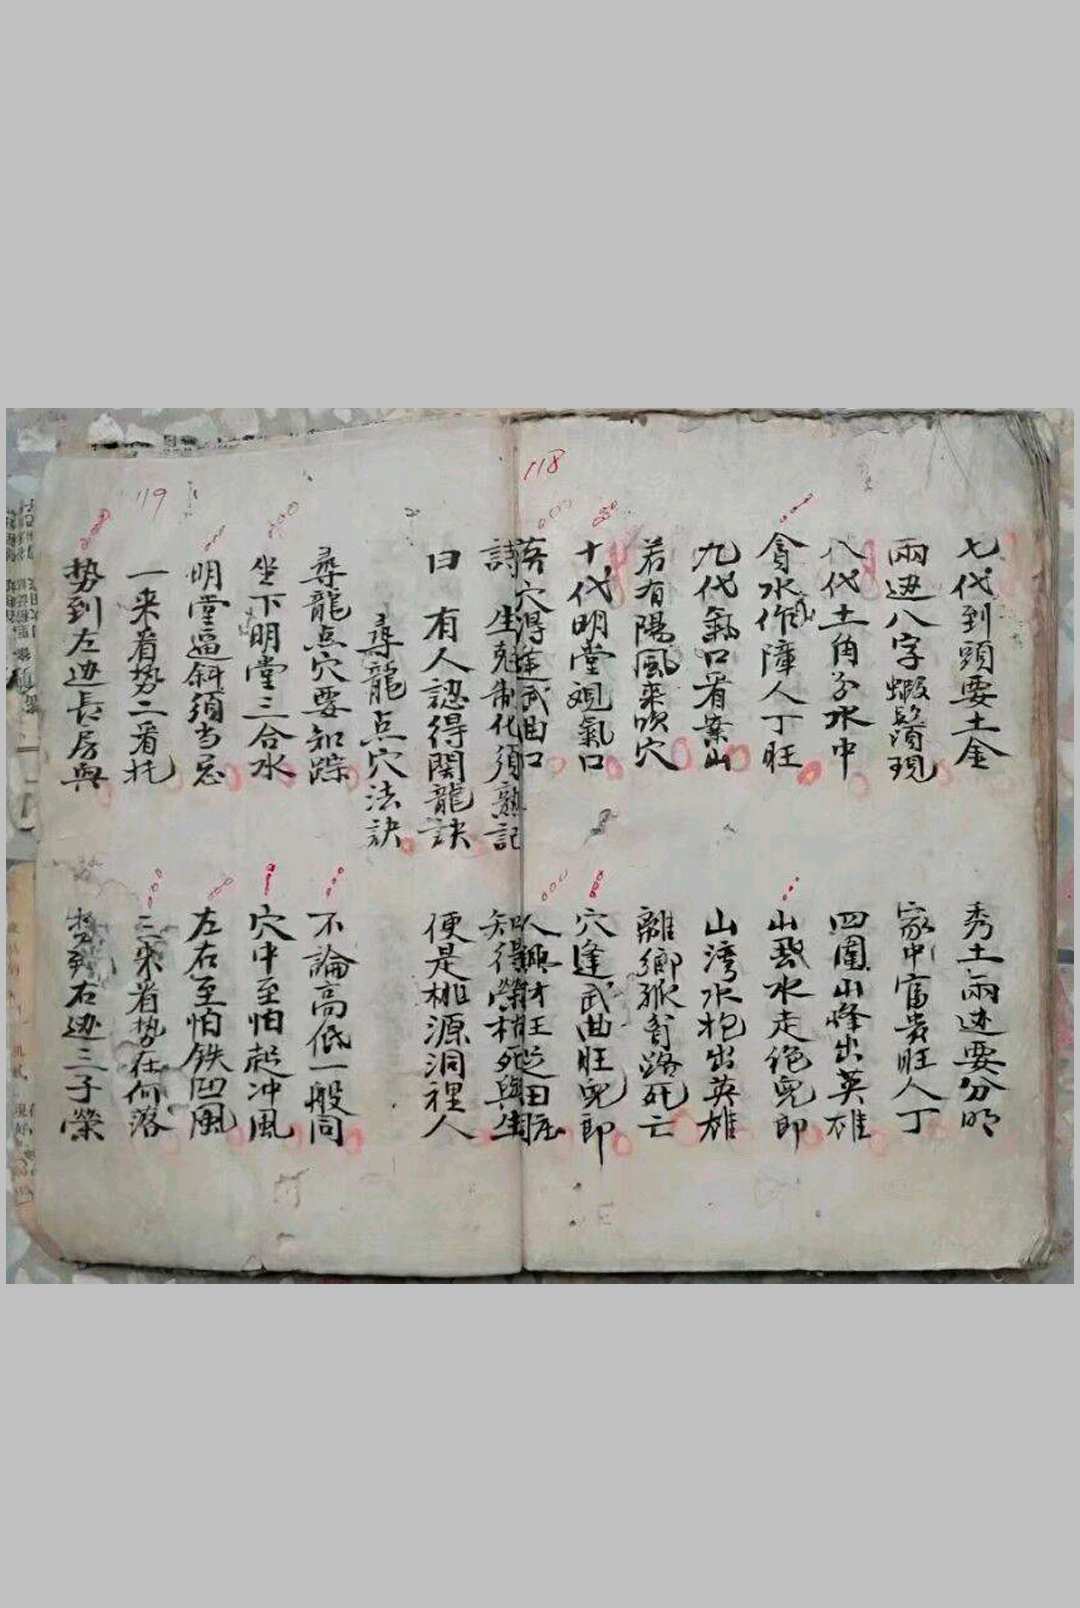 118
七代到頭要土金
秀土兩边要分明
兩边八字蝦鬚現
家中富貴旺人丁
八代土角分水中
四圍山峰出英雄
貪水作障人丁旺
山飛水走絶兒郎
九代氣口看案山
山湾水抱出英雄
若有陽風来吹穴
離鄉路死亡
十代明堂观氣口
穴逢武曲旺兒郎
落穴得逢武曲口
人興財旺足田庄
119
詩 生剋制化須熟記
知得榮枯死與生
曰 有人認得関龍訣
便是桃源洞裡人
尋龍点穴法訣
尋龍点穴要知踪
不論高低一般同
坐下明堂三合水
穴中至怕起冲風
明堂逼斜須当忌
左右至怕铁凹風
一来看势二看托
三来看势在何落
势到左边長房興
势到右边三子榮